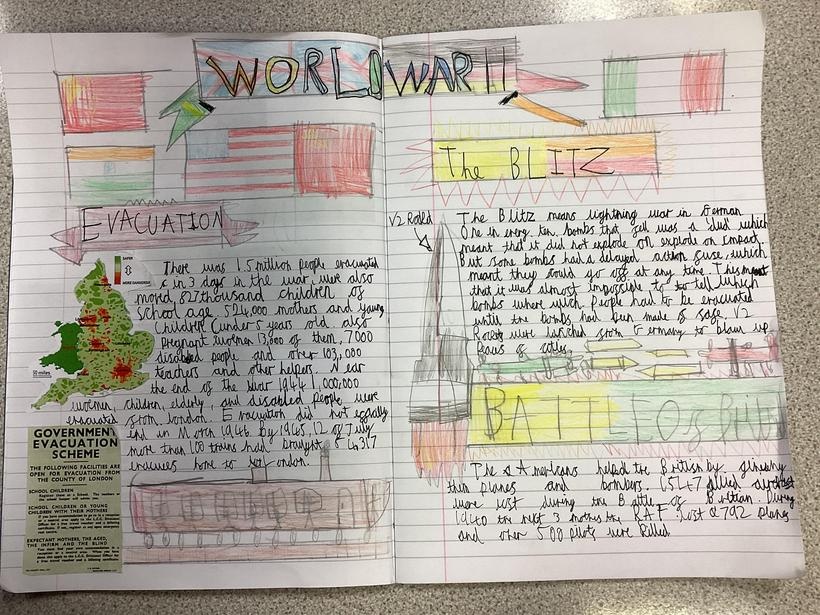 WORLD WAR II
EVACUATION
SAFER
MORE DANGEROUS
50 miles
There was 1.5 million people evacuated
in 3 days in the war, were also
moved. 827 thousand children of
school age, 524,000 mothers and young
Children (under 5 years old also
pregnant women 13,000 of them, 7000
disabled people and over 103,000
teachers and other helpers. Near
the end of the War 1944 1,000,000
women, children, elderly, and disabled people were
evacuated from London. Evacuation did not
end in March 1946. By 1945, 12 of July
more than 100 trains had brought 54,317
evacuees home to London.
GOVERNMENT
EVACUATION
SCHEME
THE FOLLOWING FACILITIES ARE
OPEN FOR EVACUATION FROM
THE COUNTY OF LONDON
SCHOOL CHILDREN
SCHOOL CHILDREN OR YOUNG
CHILDREN WITH THEIR MOTHERS
EXPECTANT MOTHERS, THE AGED,
THE INFIRM AND THE BLIND
The BLITZ
V2 Rocket
The Blitz means lightning war in German
One in every ten bombs that fell was a 'dud' which
meant that it did not explode on impact.
But some bombs had a delayed action fuse, which
meant they could go off at any time. This meant
that it was almost impossible to tell which
bombs where which. People had to be evacuated
until the bombs had been made of safe. V2
Rockets were launched from Germany to blow up
of cities.
BATTLE OF
The Americans helped the British by
them planes and bombers. 1547 allied
were lost during the Battle of Britian. During
the next 3 mothes the RAF lost 792 planes
and over 500 pilots were killed.